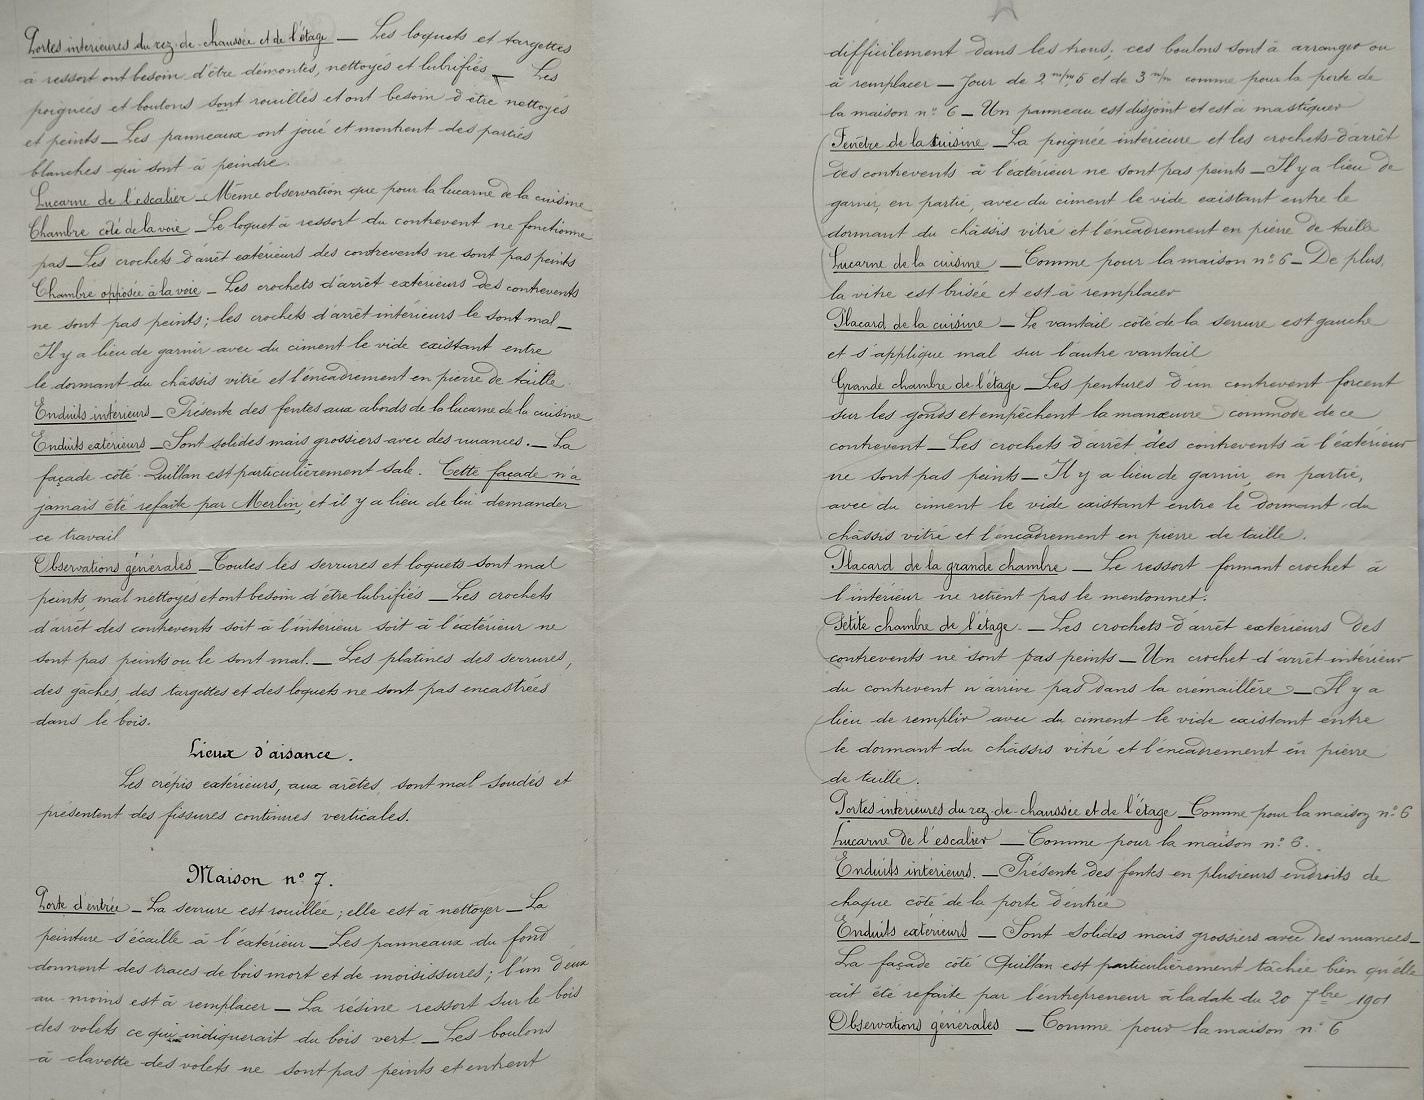 Portes intérieures du rez-de-chaussée et de l'étage — Les loquets et targettes
à ressort ont besoin d'être démontés, nettoyés et lubrifiés — Les
poignées et boutons sont rouillés et ont besoin d'être nettoyés
et peints — Les panneaux ont joué et montrent des parties
blanches qui sont à peindre.
Lucarne de l'escalier — Même observation que pour la lucarne de la cuisine
Chambre côté de la voie — Le loquet à ressort du contrevent ne fonctionne
pas — Les crochets d'arrêt extérieurs des contrevents ne sont pas peints
Chambre opposée à la voie — Les crochets d'arrêt extérieurs des contrevents
ne sont pas peints; les crochets d'arrêt intérieurs le sont mal —
Il y a lieu de garnir avec du ciment le vide existant entre
le dormant du châssis vitré et l'encadrement en pierre de taille
Enduits intérieurs — Présente des fentes aux abords de la lucarne de la cuisine
Enduits extérieurs — Sont solides mais grossiers avec des nuances. — La
façade côté Quillan est particulièrement sale. Cette façade n'a
jamais été refaite par Merlin, et il y a lieu de lui demander
ce travail
Observations générales — Toutes les serrures et loquets sont mal
peints, mal nettoyés et ont besoin d'être lubrifiés — Les crochets
d'arrêt des contrevents soit à l'intérieur soit à l'extérieur ne
sont pas peints ou le sont mal. — Les platines des serrures,
des gâches, des targettes et des loquets ne sont pas encastrées
dans le bois.
Lieux d'aisance.
Les crépis extérieurs, aux arêtes, sont mal soudés et
présentent des fissures continues verticales.
Maison n° 7.
Porte d'entrée — La serrure est rouillée; elle est à nettoyer — La
peinture s'écaille à l'extérieur — Les panneaux du fond
donnent des traces de bois mort et de moisissures; l'un d'eux
au moins est à remplacer — La résine ressort sur le bois
des volets ce qui indiquerait du bois vert. — Les boulons
à clavette des volets ne sont pas peints et entrent
difficilement dans les trous; ces boulons sont à arranger ou
à remplacer — Jour de 2 m/m,5 et de 3 m/m comme pour la porte de
la maison n° 6 — Un panneau est disjoint et est à mastiquer
Fenêtre de la cuisine — La poignée intérieure et les crochets d'arrêt
des contrevents à l'extérieur ne sont pas peints — Il y a lieu de
garnir, en partie, avec du ciment le vide existant entre le
dormant du châssis vitré et l'encadrement en pierre de taille
Lucarne de la cuisine — Comme pour la maison n° 6 — De plus,
la vitre est brisée et est à remplacer
Placard de la cuisine — Le vantail côté de la serrure est gauche
et s'applique mal sur l'autre vantail
Grande chambre de l'étage — Les pentures d'un contrevent forcent
sur les gonds et empêchent la manœuvre commode de ce
contrevent — Les crochets d'arrêt des contrevents à l'extérieur
ne sont pas peints — Il y a lieu de garnir, en partie,
avec du ciment le vide existant entre le dormant du
châssis vitré et l'encadrement en pierre de taille.
Placard de la grande chambre — Le ressort formant crochet à
l'intérieur ne retient pas le mentonnet.
Petite chambre de l'étage. — Les crochets d'arrêt extérieurs des
contrevents ne sont pas peints — Un crochet d'arrêt intérieur
du contrevent n'arrive pas dans la crémaillère — Il y a
lieu de remplir avec du ciment le vide existant entre
le dormant du châssis vitré et l'encadrement en pierre
de taille.
Portes intérieures du rez-de-chaussée et de l'étage — Comme pour la maison n° 6
Lucarne de l'escalier — Comme pour la maison n° 6.
Enduits intérieurs. — Présente des fentes en plusieurs endroits de
chaque côté de la porte d'entrée
Enduits extérieurs — Sont solides mais grossiers avec des nuances —
La façade côté Quillan est particulièrement tachée bien qu'elle
ait été refaite par l'entrepreneur à la date du 20 7bre 1901
Observations générales — Comme pour la maison n° 6